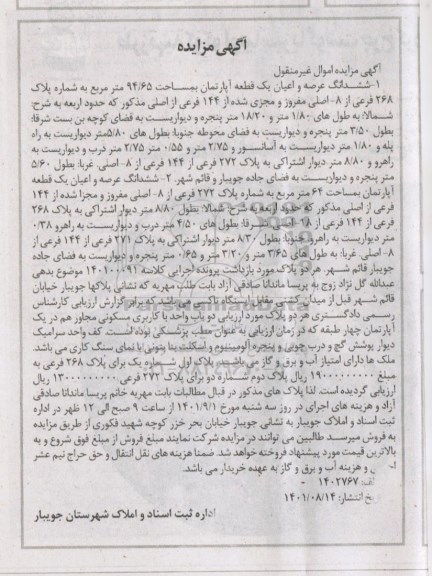 آگهی مزایده
آگهی مزایده اموال غیرمنقول
۱-ششدانگ عرصه و اعیان یک قطعه آپارتمان بمساحت ۹۴/۶۵ متر مربع به شماره پلاک
۲۶۸ فرعی از ۸- اصلی مفروز و مجزی شده از ۱۴۴ فرعی از اصلی مذکور که حدود اربعه به شرح:
شمالا: به طول های ۱/۸۰ متر و ۱۸/۲۰ متر پنجره و دیواریست به فضای کوچه بن بست شرقا:
بطول ۳/۵۰ متر پنجره و دیواریست به فضای محوطه جنوبا: بطول های ۵/۸۰متر دیواریست به راه
پله و ۱/۸۰ متر دیواریست به آسانسور و ۲/۷۵ متر و ۰/۵۵ متر ۲/۷۵ متر درب و دیواریست به
راهرو و ۸/۸۰ متر دیوار اشتراکی به پلاک ۲۷۲ فرعی از ۱۴۴ فرعی از ۸- اصلی. غربا: بطول ۵/۶۰
متر پنجره و دیواریست به فضای جاده جویبار و قائم شهر. ۲- ششدانگ عرصه و اعیان یک قطعه
آپارتمان بمساحت ۶۴ متر مربع به شماره پلاک ۲۷۲ فرعی از ۸- اصلی مفروز و مجزا شده از ۱۴۴
فرعی از اصلی مذکور که حدود اربعه به شرح: شمالا: بطول ۸/۸۰ متر دیوار اشتراکی به پلاک ۲۶۸
فرعی از ۱۴۴ فرعی از ۸- اصلی. شرقا: بطول های ۴/۵۰ متر درب و دیواریست به راهرو ۰/۳۸
متر دیواریست به راهرو جنوبا: بطول ۸/۳۰ متر دیوار اشتراکی به پلاک ۲۷۱ فرعی از ۱۴۴ فرعی از
۸- اصلی. غربا: به طول های ۳/۶۵ متر و ۳/۲۰ متر و ۰/۶۵ متر پنجره و دیواریست به فضای جاده
جویبار قائم شهر. هر دو پلاک مورد بازداشت پرونده اجرایی کلاسه ۱۴۰۱۰۰۰۹۱ موضوع بدهی
عبدالله گل نژاد زوج به پریسا ماندانا صادقی آزاد بابت طلب مهریه که نشانی پلاکها جویبار خیابان
قائم شهر قبل از میدان کشتی مقابل ایستگاه تاکسی می باشد که برابر گزارش ارزیابی کارشناس
رسمی دادگستری هر دو پلاک مورد ارزیابی دو باب واحد با کاربری مسکونی مجاور هم در یک
آپارتمان چهار طبقه که در زمان ارزیابی به عنوان مطب پزشکی بوده است. کف واحد سرامیک
دیوار پوشش گچ و درب چوبی و پنجره آلومینیوم و اسکلت بنا بتونی با نمای سنگ کاری می باشد.
ملک ها دارای امتیاز آب و برق و گاز می باشند پلاک اول شماره یک برای پلاک ۲۶۸ فرعی به
مبلغ ۱۹۰۰۰۰۰۰۰۰۰ ریال پلاک دوم شماره دو برای پلاک ۲۷۲ فرعی ۱۳۰۰۰۰۰۰۰۰۰ ریال
ارزیابی گردیده است. لذا پلاک های مذکور در قبال مطالبات بابت مهریه خانم پریسا ماندانا صادقی
آزاد و هزینه های اجرای در روز سه شنبه مورخ ۱۴۰۱/۹/۱ از ساعت ۹ صبح الی ۱۲ ظهر در اداره
ثبت اسناد و املاک جویبار به نشانی جویبار خیابان بحر خزر کوچه شهید فکوری از طریق مزایده
به فروش میرسد طالبین می توانند در مزایده شرکت نمایند مبلغ فروش از مبلغ فوق شروع و به
بالاترین قیمت مورد پیشنهاد فروخته خواهد شد. ضمنا هزینه های نقل انتقال و حق حراج نیم عشر
و هزینه آب و برق و گاز به عهده خریدار می باشد.
الف: ۱۴۰۲۷۶۷ -
تاریخ انتشار: ۱۴۰۱/۰۸/۱۴
اداره ثبت اسناد و املاک شهرستان جویبار